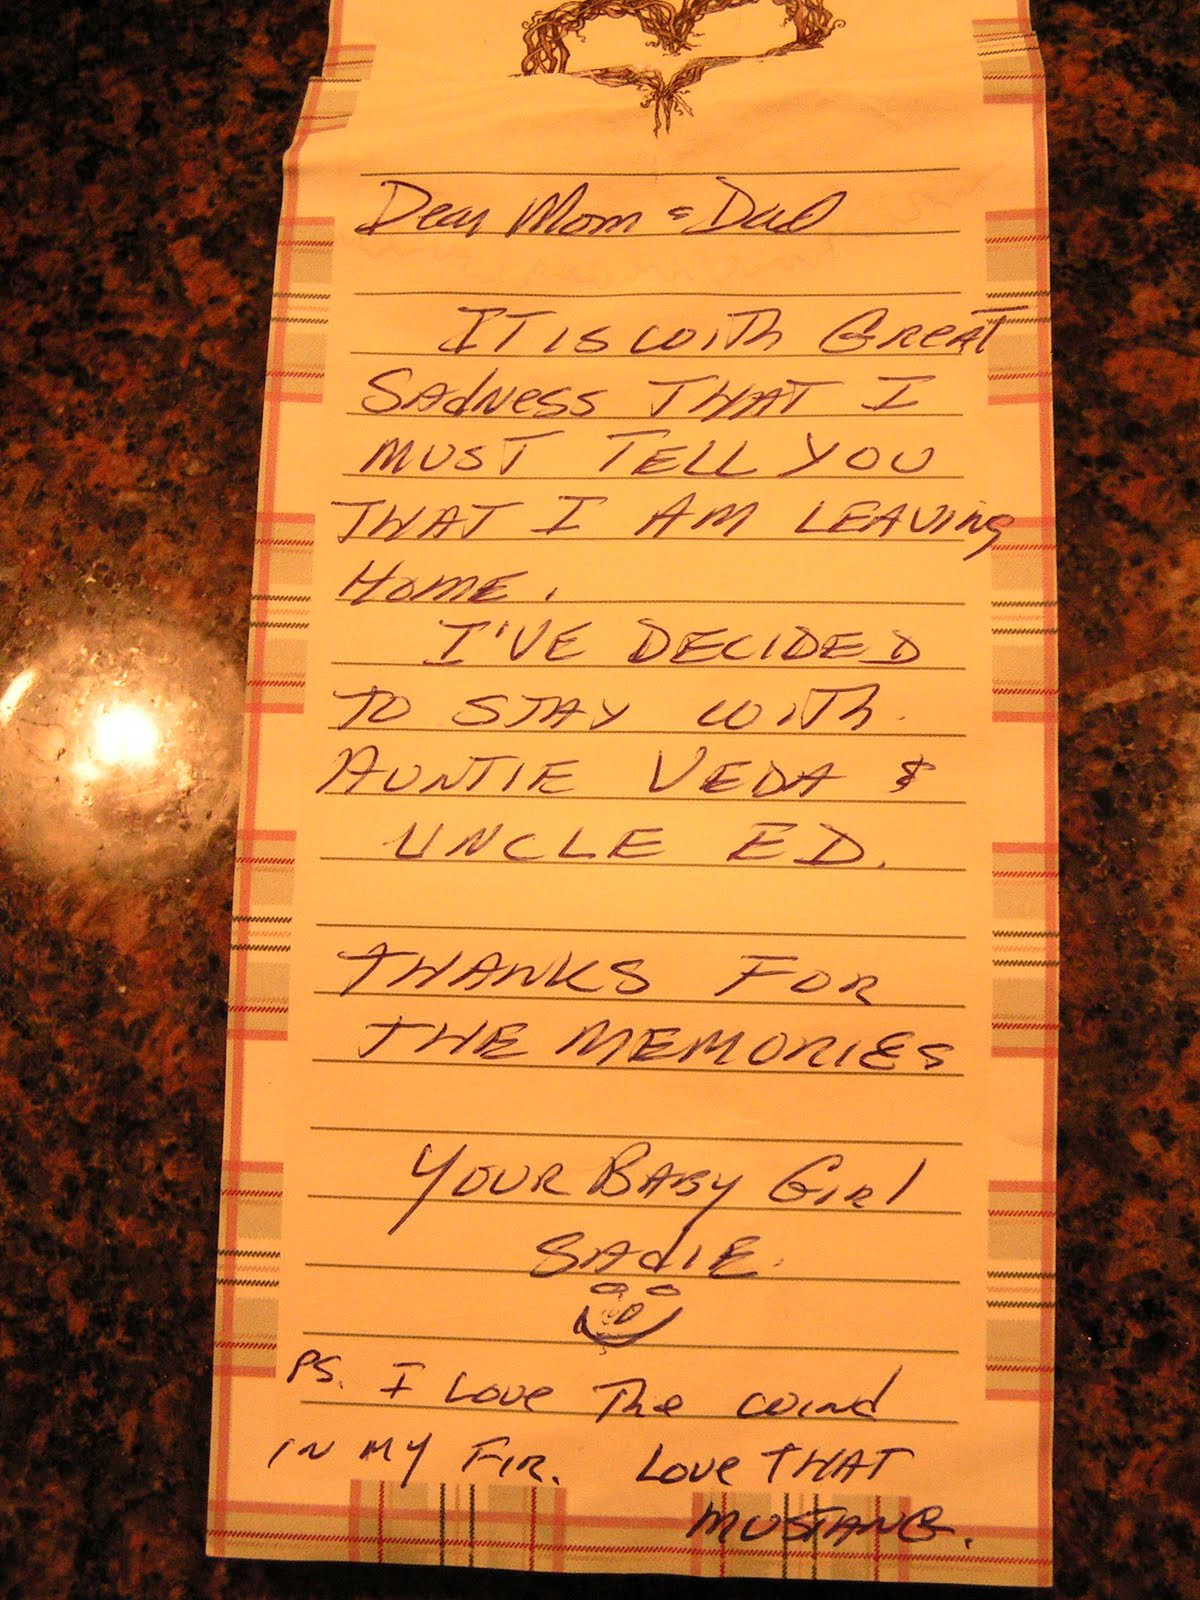 Dear Mom & Dad
IT IS WITH GREAT
SADNESS THAT I
MUST TELL YOU
THAT I AM LEAVING
HOME.
I'VE DECIDED
TO STAY WITH.
AUNTIE VEDA &
UNCLE ED.
THANKS FOR
THE MEMORIES
YOUR BABY GIRL
SADIE.
PS. I LOVE THE WIND
IN MY FIR. LOVE THAT
MUSTANG.